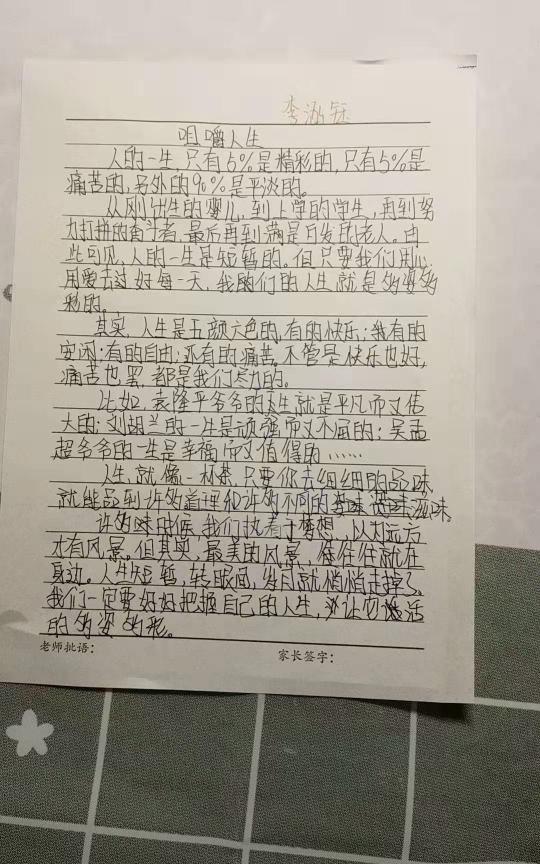 咀嚼人生
人的一生,只有5%是精彩的,只有5%是
痛苦的,另外的90%是平淡的。
从刚出生的婴儿,到上学的学生,再到努
力打拼的奋斗者,最后再到满是白发的老人。由
此可见,人的一生是短暂的。但只要我们用心,
用爱去过好每一天,我们的人生就是多姿多
彩的。
其实,人生是五颜六色的,有的快乐;有的
安闲;有的自由;还有的痛苦,不管是快乐也好,
痛苦也罢,都是我们尽力的。
比如,袁隆平爷爷的人生就是平凡而又伟
大的;刘胡兰的一生是顽强而又不屈的;吴孟
超爷爷的一生是幸福而又值得的……
人生就像一杯茶,只要你去细细的品味,
就能品到许多道理和许多不同的滋味。
许多时候,我们执着于梦想,以为远方
才有风景。但其实,最美的风景,往往就在
身边。人生短暂,转眼间,岁月就悄悄走掉了。
我们一定要好好把握自己的人生,让它活
的多姿多彩。
老师批语: 家长签字: